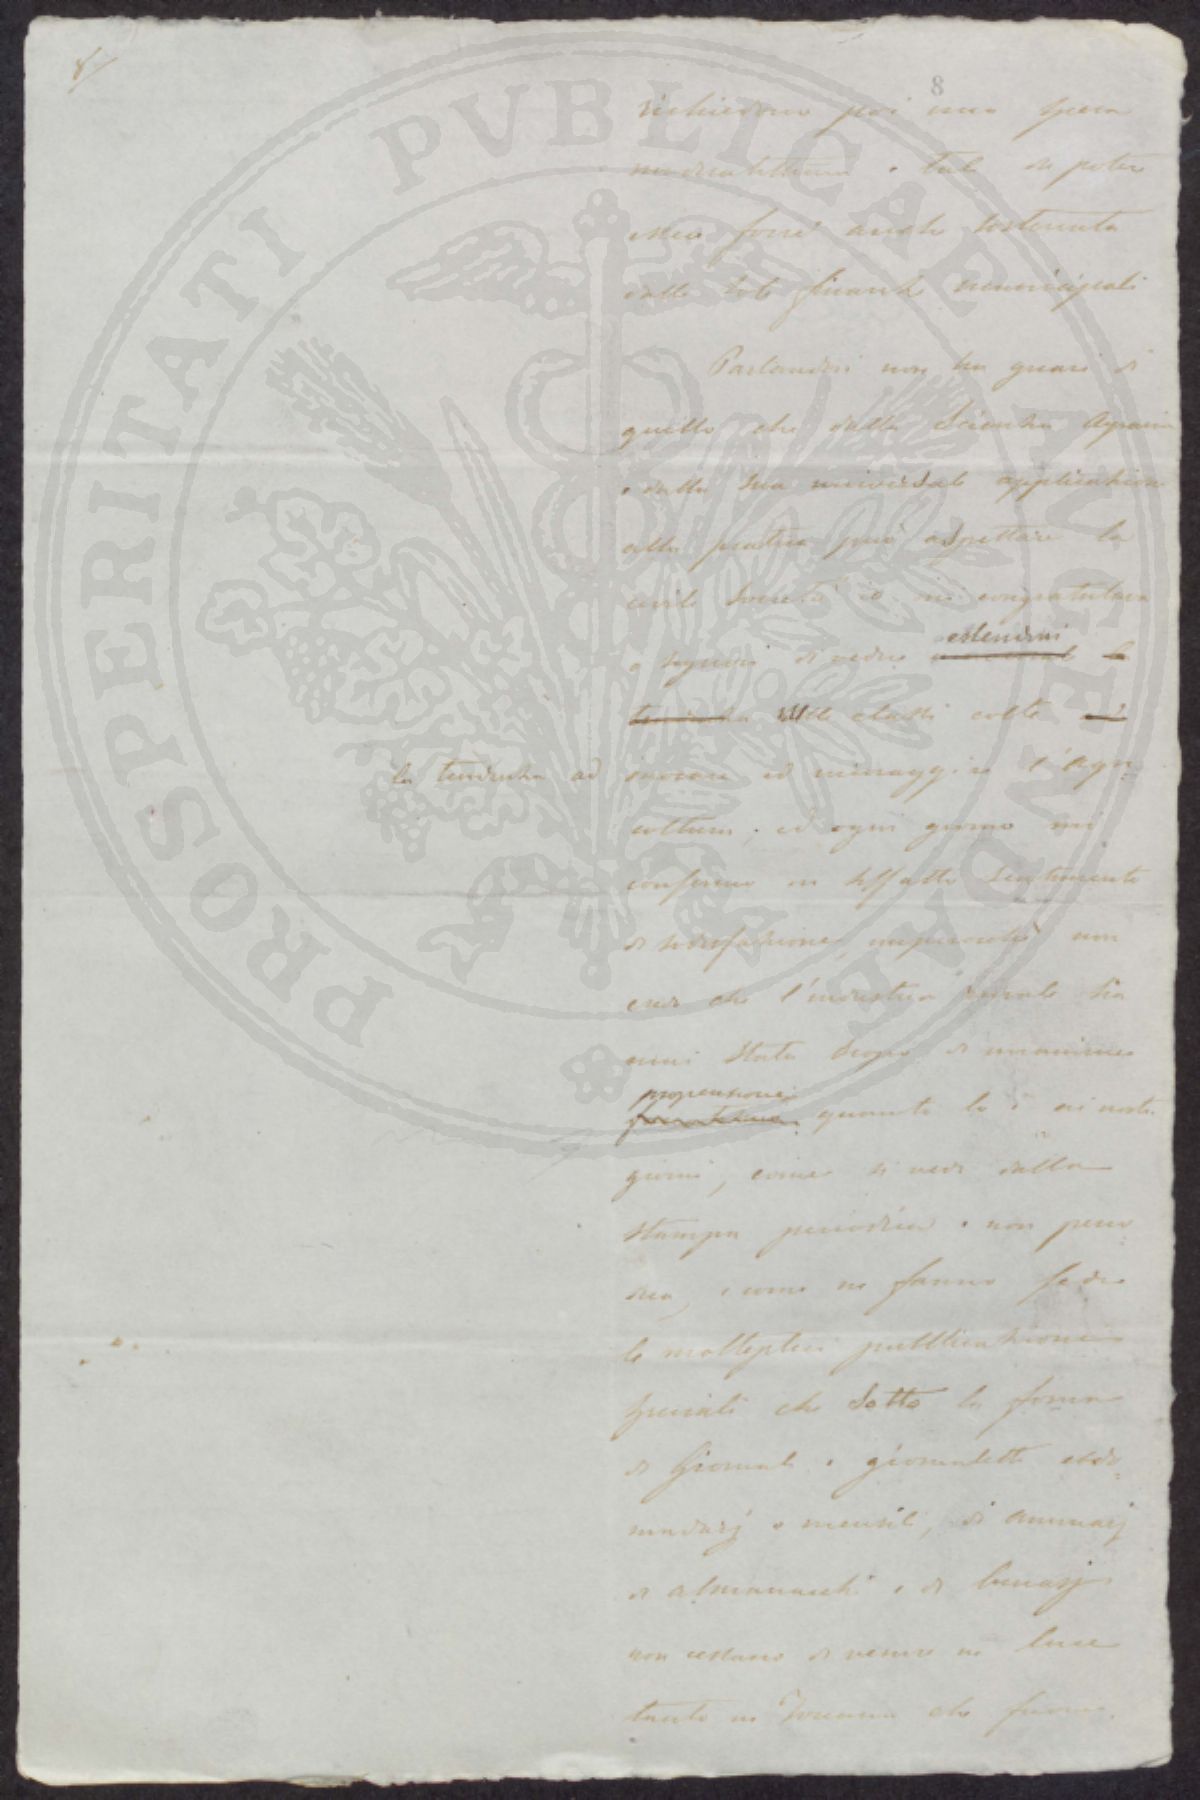 8/
8
PROSPERITATI PVBLICAE AVGENDAE
richiedono poi una spesa
modicissima e tale da potere
essere forse anche sostenuta
dalle sole finanze municipali
Parlandosi non ha guari di
quello che dalla Scienza Agraria
e dalla sua universale applicazione
alla pratica può aspettare la
civile Società io mi congratulava
o Signori di vedere estendersi
nelle classi colte
la tendenza ad onorare ed incoraggire l'Agri
coltura, ed ogni giorno mi
confermo in siffatto sentimento
di sodisfazione, imperocchè non
credo che l'industria rurale sia
mai stata scopo di unanime
propensione quanto lo è ai nostri
giorni, come si vede dalla
stampa periodica e non perio
dica, e come ne fanno fede
le molteplici pubblicazioni
speciali che sotto la forma
di Giornali e giornaletti ebdo-
madarj o mensili, di annuarj
di almanacchi e di lunarj
non cessano di venire in luce
tanto in Toscana che fuori.